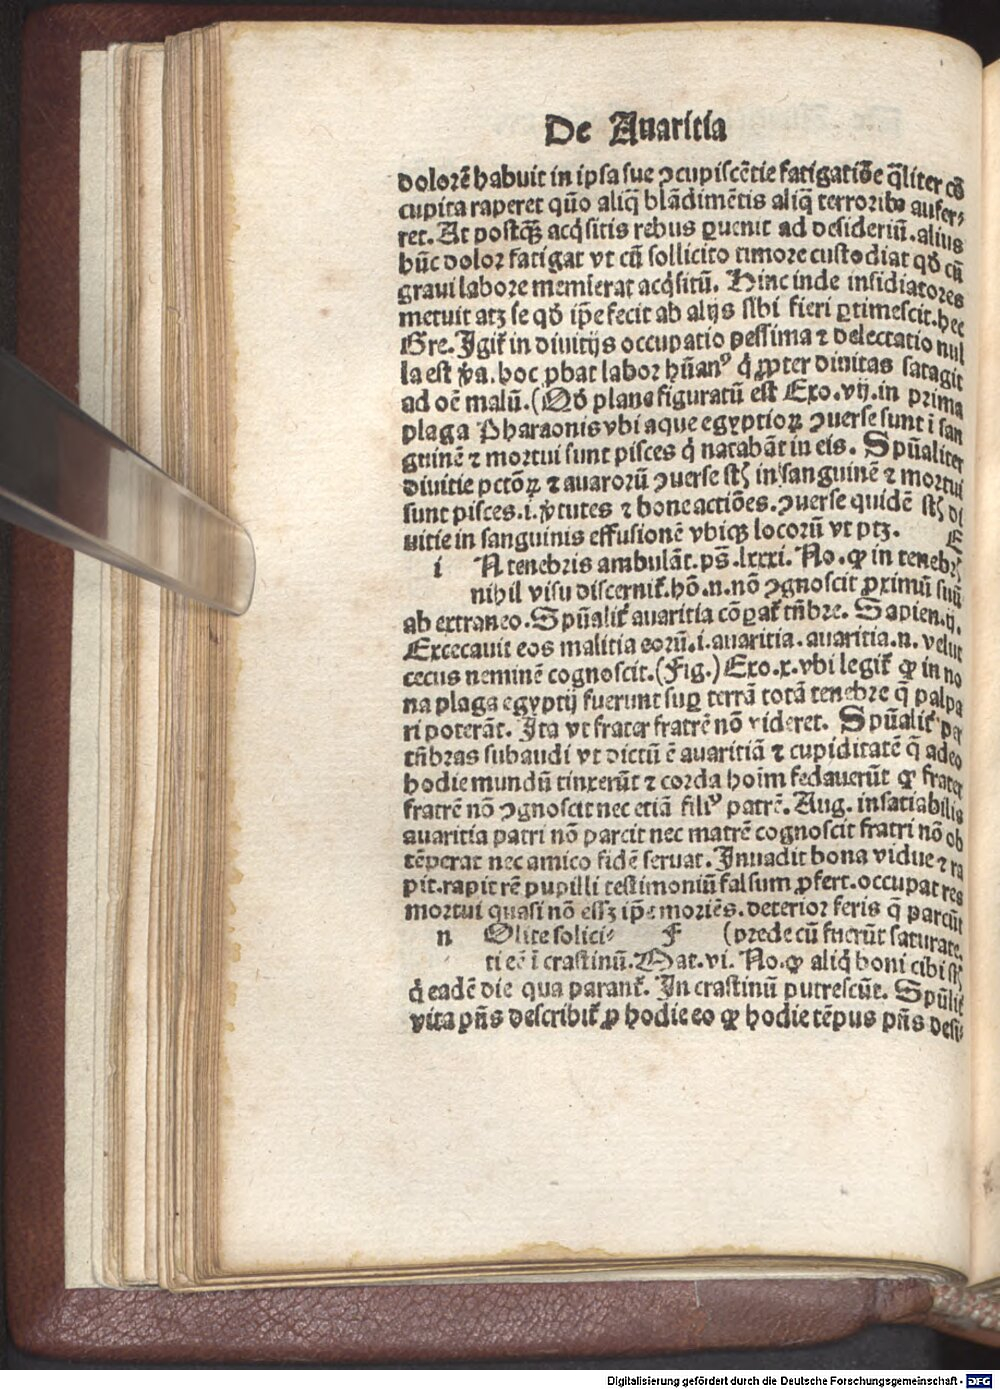 De Auaritia
dolorē habuit in ipsa sue ꝯcupiscētie fatigatiōe q̄liter cō
cupita raperet quō aliq̄ blādimētis aliq̄ terroribꝰ aufer⸗
ret. At postq̄ꝫ acq̄sitis rebus ꝑuenit ad desideriū. alius
hūc dolor fatigat vt cū sollicito timore custodiat qḋ cū
graui labore meminerat acq̄sitū. Hinc inde insidiatores
metuit atꝫ se qḋ ip̄e fecit ab alijs sibi fieri ꝑtimescit. hec
Gre. Igiť in diuitijs occupatio pessima ⁊ delectatio nul
la est v̄a. hoc ꝓbat labor hūanꝰ q̇ ꝓpter diuitas satagit
ad oē malū. (Qḋ plane figuratū est Exo. vij. in prima
plaga Pharaonis vbi aque egyptioꝝ ꝯuerse sunt ī san
guinē ⁊ mortui sunt pisces q̇ natabāt in eis. Spūaliter
diuitie pctōꝝ ⁊ auarorū ꝯuerse sť in sanguinē ⁊ mortui
sunt pisces .i. v̄tutes ⁊ bone actiōes. ꝯuerse quidē sť di
uitie in sanguinis effusionē vbicꝫ locorū vt ptꝫ. E
i N tenebris ambulāt. ps̄. lxxxi. No. ꝙ in tenebꝭ
nihil visu discerniť. hō .n. nō ꝯgnoscit ꝓximū suū
ab extraneo. Spūaliť auaritia cōꝑať tn̄bre. Sapien. ij.
Excecauit eos malitia eorū .i. auaritia. auaritia .n. velut
cecus neminē cognoscit. (Fig.) Exo. x. vbi legiť ꝙ in no
na plaga egyptij fuerunt suꝑ terrā totā tenebre q̄ palpa
ri poterāt. Ita vt frater fratrē nō videret. Spūaliť per
tn̄bras subaudi vt dictū ē auaritiā ⁊ cupiditatē q̄ adeo
hodie mundū tinxerūt ⁊ corda hoīm fedauerūt ꝙ frater
fratrē nō ꝯgnoscit nec etiā filiꝰ patrē. Aug. insatiabilis
auaritia patri nō parcit nec matrē cognoscit fratri nō ob
tēperat nec amico fidē seruat. Inuadit bona vidue ⁊ ra
pit. rapit rē pupilli testimoniū falsum ꝓfert. occupat res
mortui quasi nō essꝫ ip̄e moriēs. deterior feris q̄ parcūt
n Olite solici⸗ F (prede cū fuerūt saturate.
ti eē ī crastinū. Mat. vi. No. ꝙ aliq̇ boni cibi sť
q̇ eadē die qua paranť. In crastinū putrescūt. Spūliť
vita pn̄s describiť ꝑ hodie eo ꝙ hodie tēpus pn̄s desi⸗
Digitalisierung gefördert durch die Deutsche Forschungsgemeinschaft - DFG